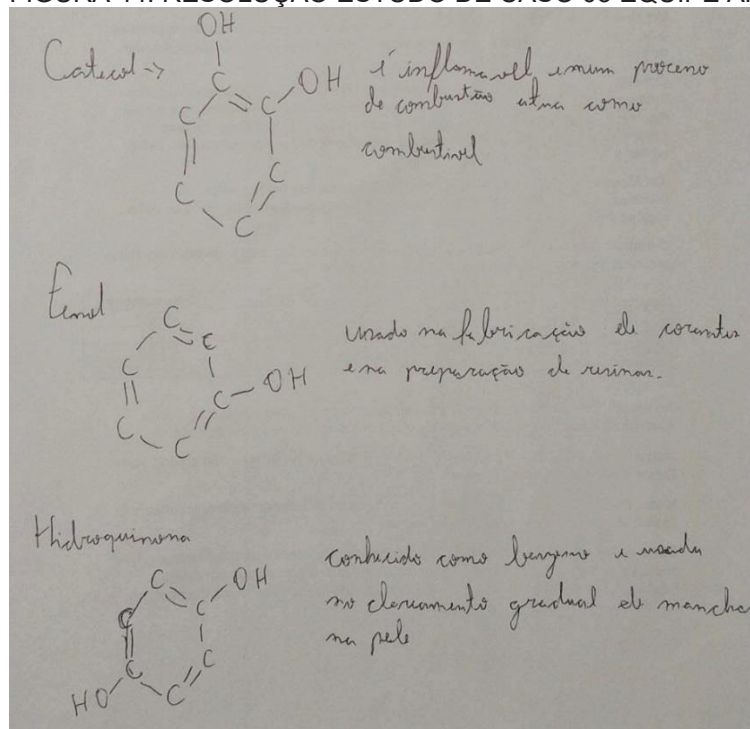 FIGURA 11: RESOLUÇÃO ESTUDO DE CASO
OH
Catecol → OH é inflamavel e num processo
de combustão atua como
combustivel
C C C C C C
Fenol
C C C C C C OH
usado na fabricação de corantes
e na preparação de resinas.
Hidroquinona
C C C C C C OH
HO
conhecido como benzeno e usada
no clareamento gradual de mancha
na pele